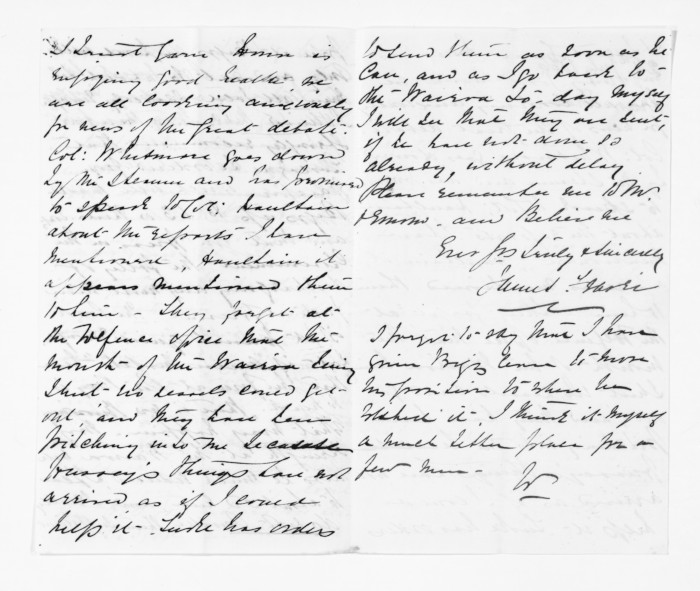 I trust your House is
enjoying good health we
are all looking anxiously
for news of the great debate.
Col: Whitmore goes down
by the Steamer and has promised
to speak to Col: Haultain
about the reports I have
mentioned, Haultain it
appears mentioned them
to him - They forget at
the Defence office that the
mouth of the Wairoa being
shut no vessels could get
out, and they have been
pitching into me because
things have not
arrived as if I could
help it - has orders
to send them as soon as he
can, and as I go back to
the Wairoa to-day myself
I will see that they are sent,
if he have not done so
already, without delay
Please remember me to Mr.
and Believe me
Ever Yrs truly & sincerely
James
I forgot to say that I have
given Biggs leave to move
his position to where he
wished it, I think it myself
a much better place for a
few men -